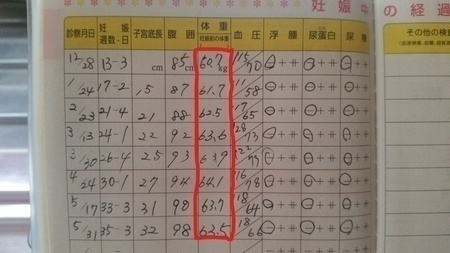 妊娠中の経過
診察月日 妊娠週数-日 子宮底長 腹囲 体重 妊娠前の体重 血圧 浮腫 尿蛋白 尿糖 その他の検
12/28 13-3 cm 85cm 60.7kg 115/70 - + ++ - + ++ - + ++
1/24 17-2 15 87 61.7 111/58 - + ++ - + ++ - + ++
2/23 21-4 21 88 62.5 117/65 - + ++ - + ++ - + ++
3/13 24-1 22 92 63.6 128/73 - + ++ - + ++ - + ++
3/30 26-4 25 93 63.9 122/79 - + ++ - + ++ - + ++
4/24 30-1 27 94 64.1 116/78 - + ++ - + ++ - + ++
5/17 33-3 31 98 63.7 118/64 - + ++ - + ++ - + ++
5/31 35-3 32 98 63.5 118/66 - + ++ - + ++ - + ++